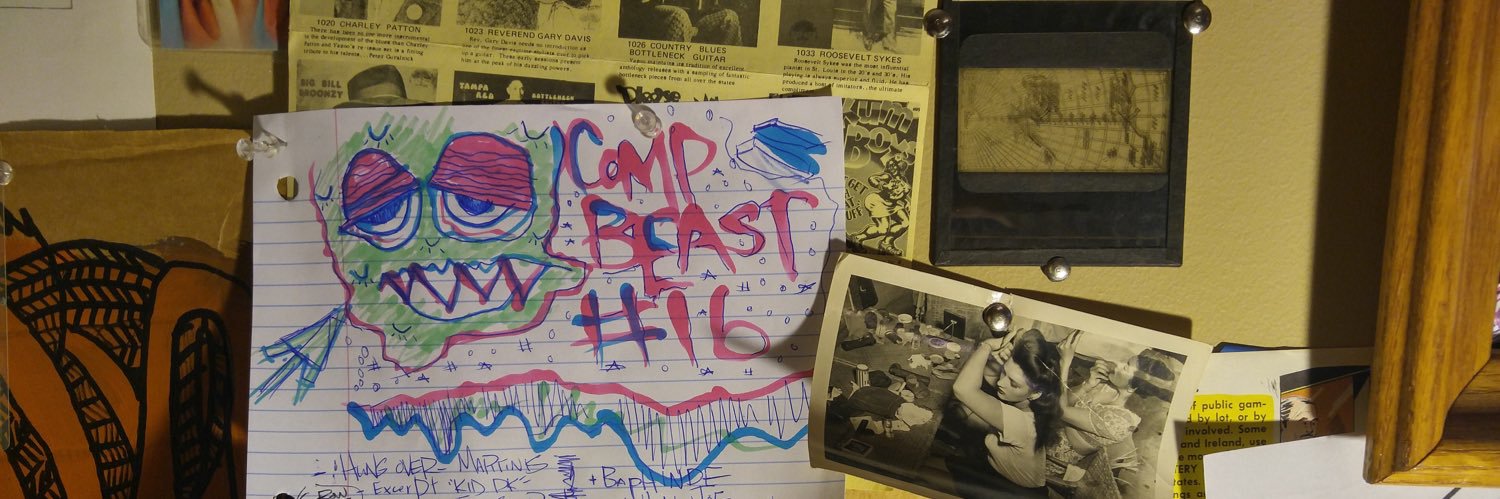 1020 CHARLEY PATTON
There has been no one more instrumental
in the development of the blues than Charley
Patton and Yazoo's re-issue set is a fitting
tribute to his talents... Peter Guralnick
1023 REVEREND GARY DAVIS
Rev. Gary Davis needs no introduction as
one of the finest
up a guitar. These early sessions present
him at the peak of his dazzling powers.
1026 COUNTRY BLUES
BOTTLENECK GUITAR
Yazoo maintains its tradition of excellent
anthology releases with a sampling of fantastic
bottleneck pieces from all over the states
1033 ROOSEVELT SYKES
Roosevelt Sykes was the most influential
pianist in St. Louis in the 20's and 30's. His
playing is always superior and fluid. He has
produced a host of imitators...the ultimate
BIG BILL
BROONZY
TAMPA
RED
BOTTLENECK
Please
COMP
BEAST
#16
GET
HUNG OVER - MARTINIS
EXCERPT "KID DK"
of public gam-
d by lot, or by
involved. Some
and Ireland, use
TERY
tates.